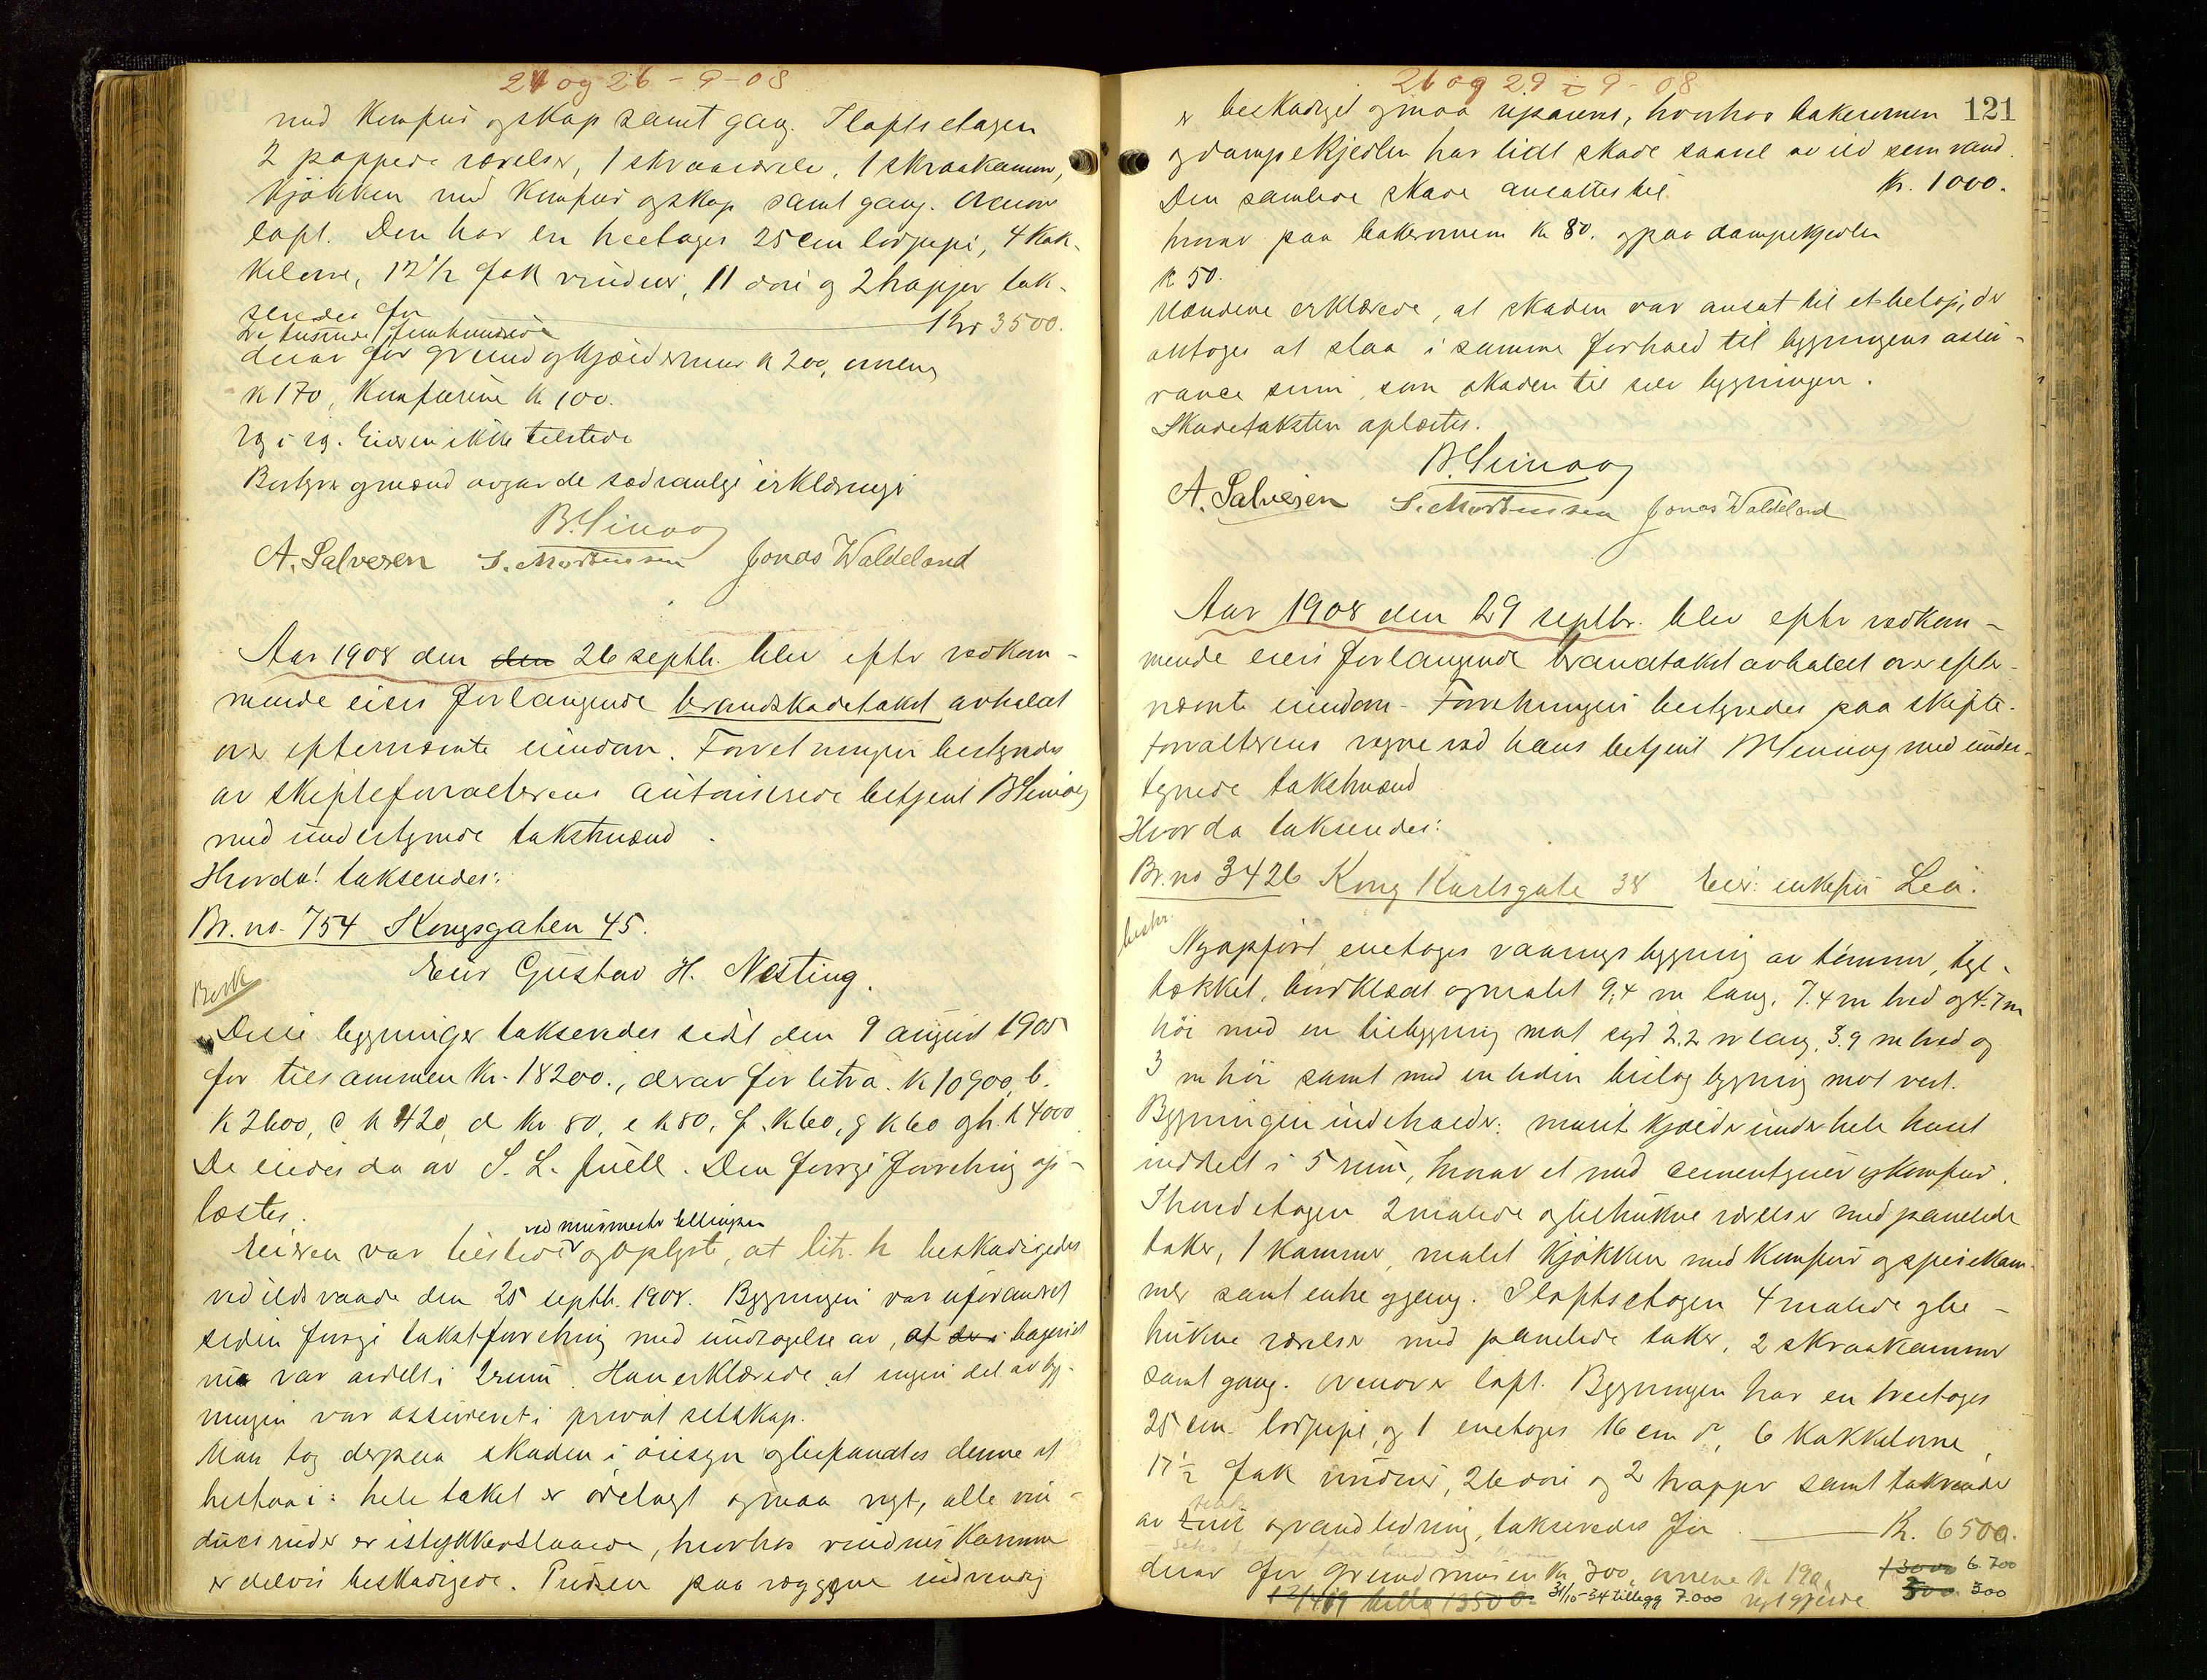 24 og 26 - 9 - 08
med komfur og skap samt gang. I loftsetagen
2 pappede værelser, 1 skraaværelse, 1 skraakammer,
kjøkken med komfur og skap samt gang. Ovenover
loft. Den har en treetages 25 cm lodpipe, 4 kak-
kelovne, 12 1/2 fak vinduer, 11 døre og 2 trapper tak-
seredes for Kr 3500.
tre tusinde femhundrede
derav for grund og kjældermur kr 200, ovnene
kr 170, komfurene kr 100.
Eieren ikke tilstede
Bestyrer og mænd avgav de sædvanlige erklæringer
A. Salvesen S. Mortensen Jonas Waldeland
Aar 1908 den den 26 septbr. blev efter vedkom-
mende eiers forlangende brandskadetakst avholdt
over efternævnte eiendom. Forretningen bestyredes
av skifteforvalterens autoriserede betjent
med undertegnede takstmænd.
Hvorda! takseredes:
Br. no. 754 Kongsgaten 45.
Eier Gustav H. Nesting.
Besk
Disse bygninger takseredes sidst den 9 august 1905
for tilsammen kr. 18200., derav for litra a. kr 10900, b.
kr 2600, c kr 420, d kr 80, e kr 80, f. kr 60, g kr 60 og h. kr 4000
De eiedes da av S. L. Juell. Den forrige forretning op-
læstes.
ved murmester Ellingsen
Eieren var tilstede og oplyste, at litr. h beskadigedes
ved ildsvaade den 25 septbr. 1908. Bygningen var uforandret
siden forrige takstforretning med undtagelse av, at der i bageriet
var avdelt i 2 rum. Han erklærede at ingen del av byg-
ningen var assureret i privat selskap.
Man tog derpaa skaden i øiesyn og befandtes denne at
bestaa i: hele taket er ødelagt og maa nyt, alle vin-
duesruder er istykkerslaaede, hvorhos vindueskarmene
er delvis beskadigede. Pudsen paa væggene indvendig
26 og 29 - 9 - 08
121
er beskadiget og maa repareres, hvorhos bakerovnen
og dampekjedlen har lidt skade saavel av ild som vand.
Den samlede skade ansattes til Kr. 1000.
hvorav paa bakerovnen kr 80. og paa dampekjedlen
kr 50.
Mændene erklærede, at skaden var ansat til et beløp, der
antoges at staa i samme forhold til bygningens assu-
rance sum, som skaden til selve bygningen.
Skadetaksten oplæstes.
A. Salvesen S. Mortensen Jonas Waldeland
Aar 1908 den 29 septbr. blev efter vedkom-
mende eiers forlangende brandtakst avholdt over efter-
nævnte eiendom. Forretningen bestyredes paa skifte-
forvalterens vegne ved hans betjent med under-
tegnede takstmænd
Hvorda takseredes:
Br. no 3426 Kong Karlsgate 38 Eier: enkefru Lea.
beskr.
Nyopført enetages vaaningsbygning av tømmer, tegl-
tækket, bordklædt og malet 9,4 m lang, 7.4 m bred og 4.7 m
høi med en tilbygning mot syd 2.2 m lang, 3.9 m bred og
3 m høi samt med en liden bislagbygning mot vest.
Bygningen indeholder: muret kjælder under hele huset
inddelt i 5 rum, hvorav et med cementgulv og komfur.
I hovedetagen 2 malede og betrukne værelser med panelede
taker, 1 kammer, malet kjøkken med komfur og spisekam-
mer samt entre og gang. I loftsetagen 4 malede og be-
trukne værelser med panelede taker, 2 skraakammer
samt gang. Ovenover loft. Bygningen har en treetages
25 cm. lodpipe, og 1 enetages 16 cm do, 6 kakkelovne,
17 1/2 fak vinduer, 26 døre og 2 trapper samt takrender
av zink og vandledning, takseredes for K. 6500.
derav for grundmuren kr 300, ovnene kr 190. 13000 6 700
31/10-34 tillegg 7.000 300